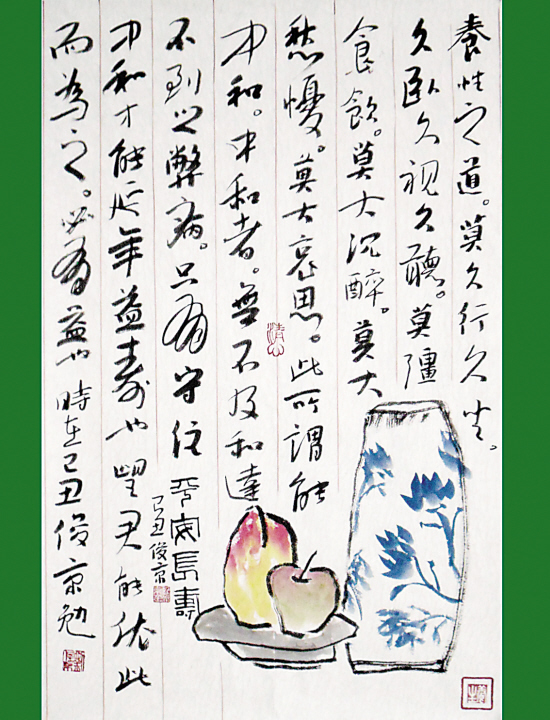 養性之道。莫久行久坐。
久臥久視久聽。莫彊
食飲。莫大沉醉。莫大
愁憂。莫大哀思。此所謂能
中和。中和者。無不及和達
不到之弊病。只有守住
中和才能延年益壽也望君能依此
而為之。必有益也時在己丑俊京勉
平安長壽
己丑俊京